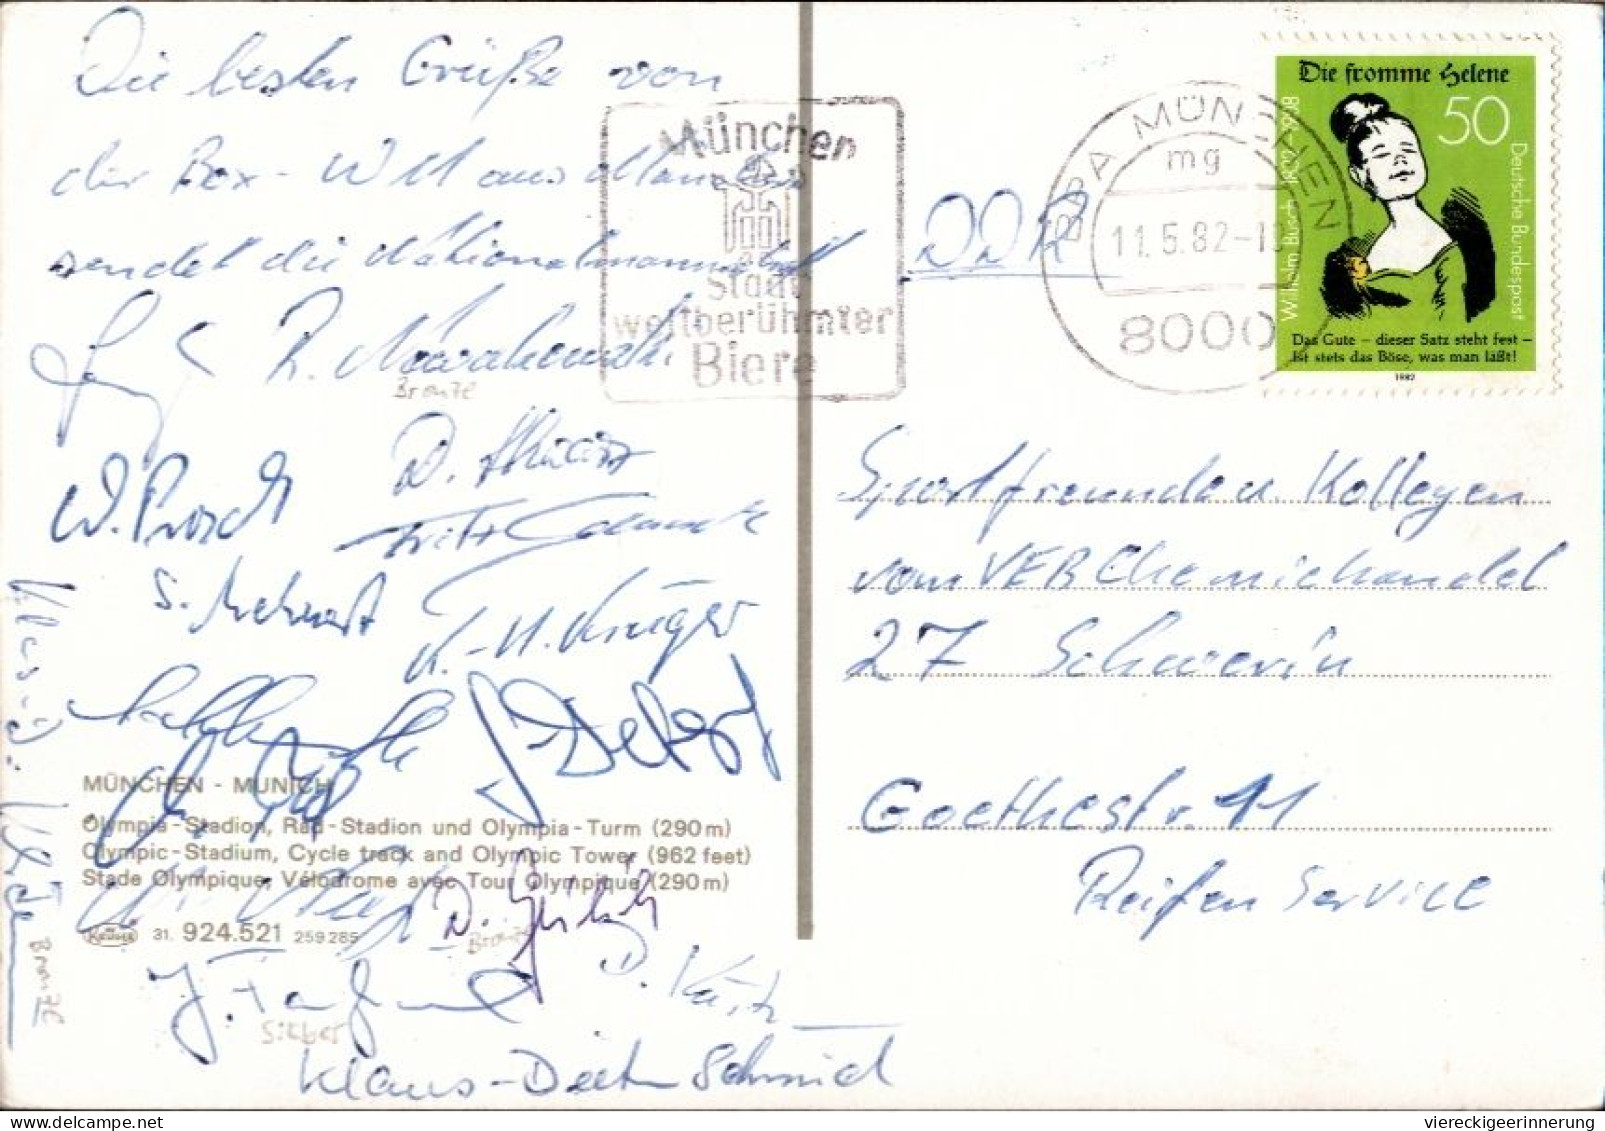 Die besten Grüße von
der Box-WM aus München
sendet die Nationalmannschaft
R. Nowakowski
Bronze
W. Prosch
D.
Fritz
S. Mehnert
K.-H. Krüger
MÜNCHEN - MUNICH
Olympia-Stadion, Rad-Stadion und Olympia-Turm (290 m)
Olympic-Stadium, Cycle track and Olympic Tower (962 feet)
Stade Olympique, Vélodrome avec Tour Olympique (290 m)
Krüger 31. 924.521 259285
D.
Bronze
Bronze
D. Kürtz
Silber
Klaus-Dieter Schmid
München
Stadt
weltberühmter
Biere
BPA MÜNCHEN
mg
11.5.82-1
8000
Die fromme Helene
50
Wilhelm Busch 1832-1908
Deutsche Bundespost
Das Gute – dieser Satz steht fest –
Ist stets das Böse, was man läßt!
1982
DDR
Sportfreunde u. Kollegen
vom VEB Chemiehandel
27 Schwerin
Goethestr. 11
Reifen Service
viereckigeerinnerung